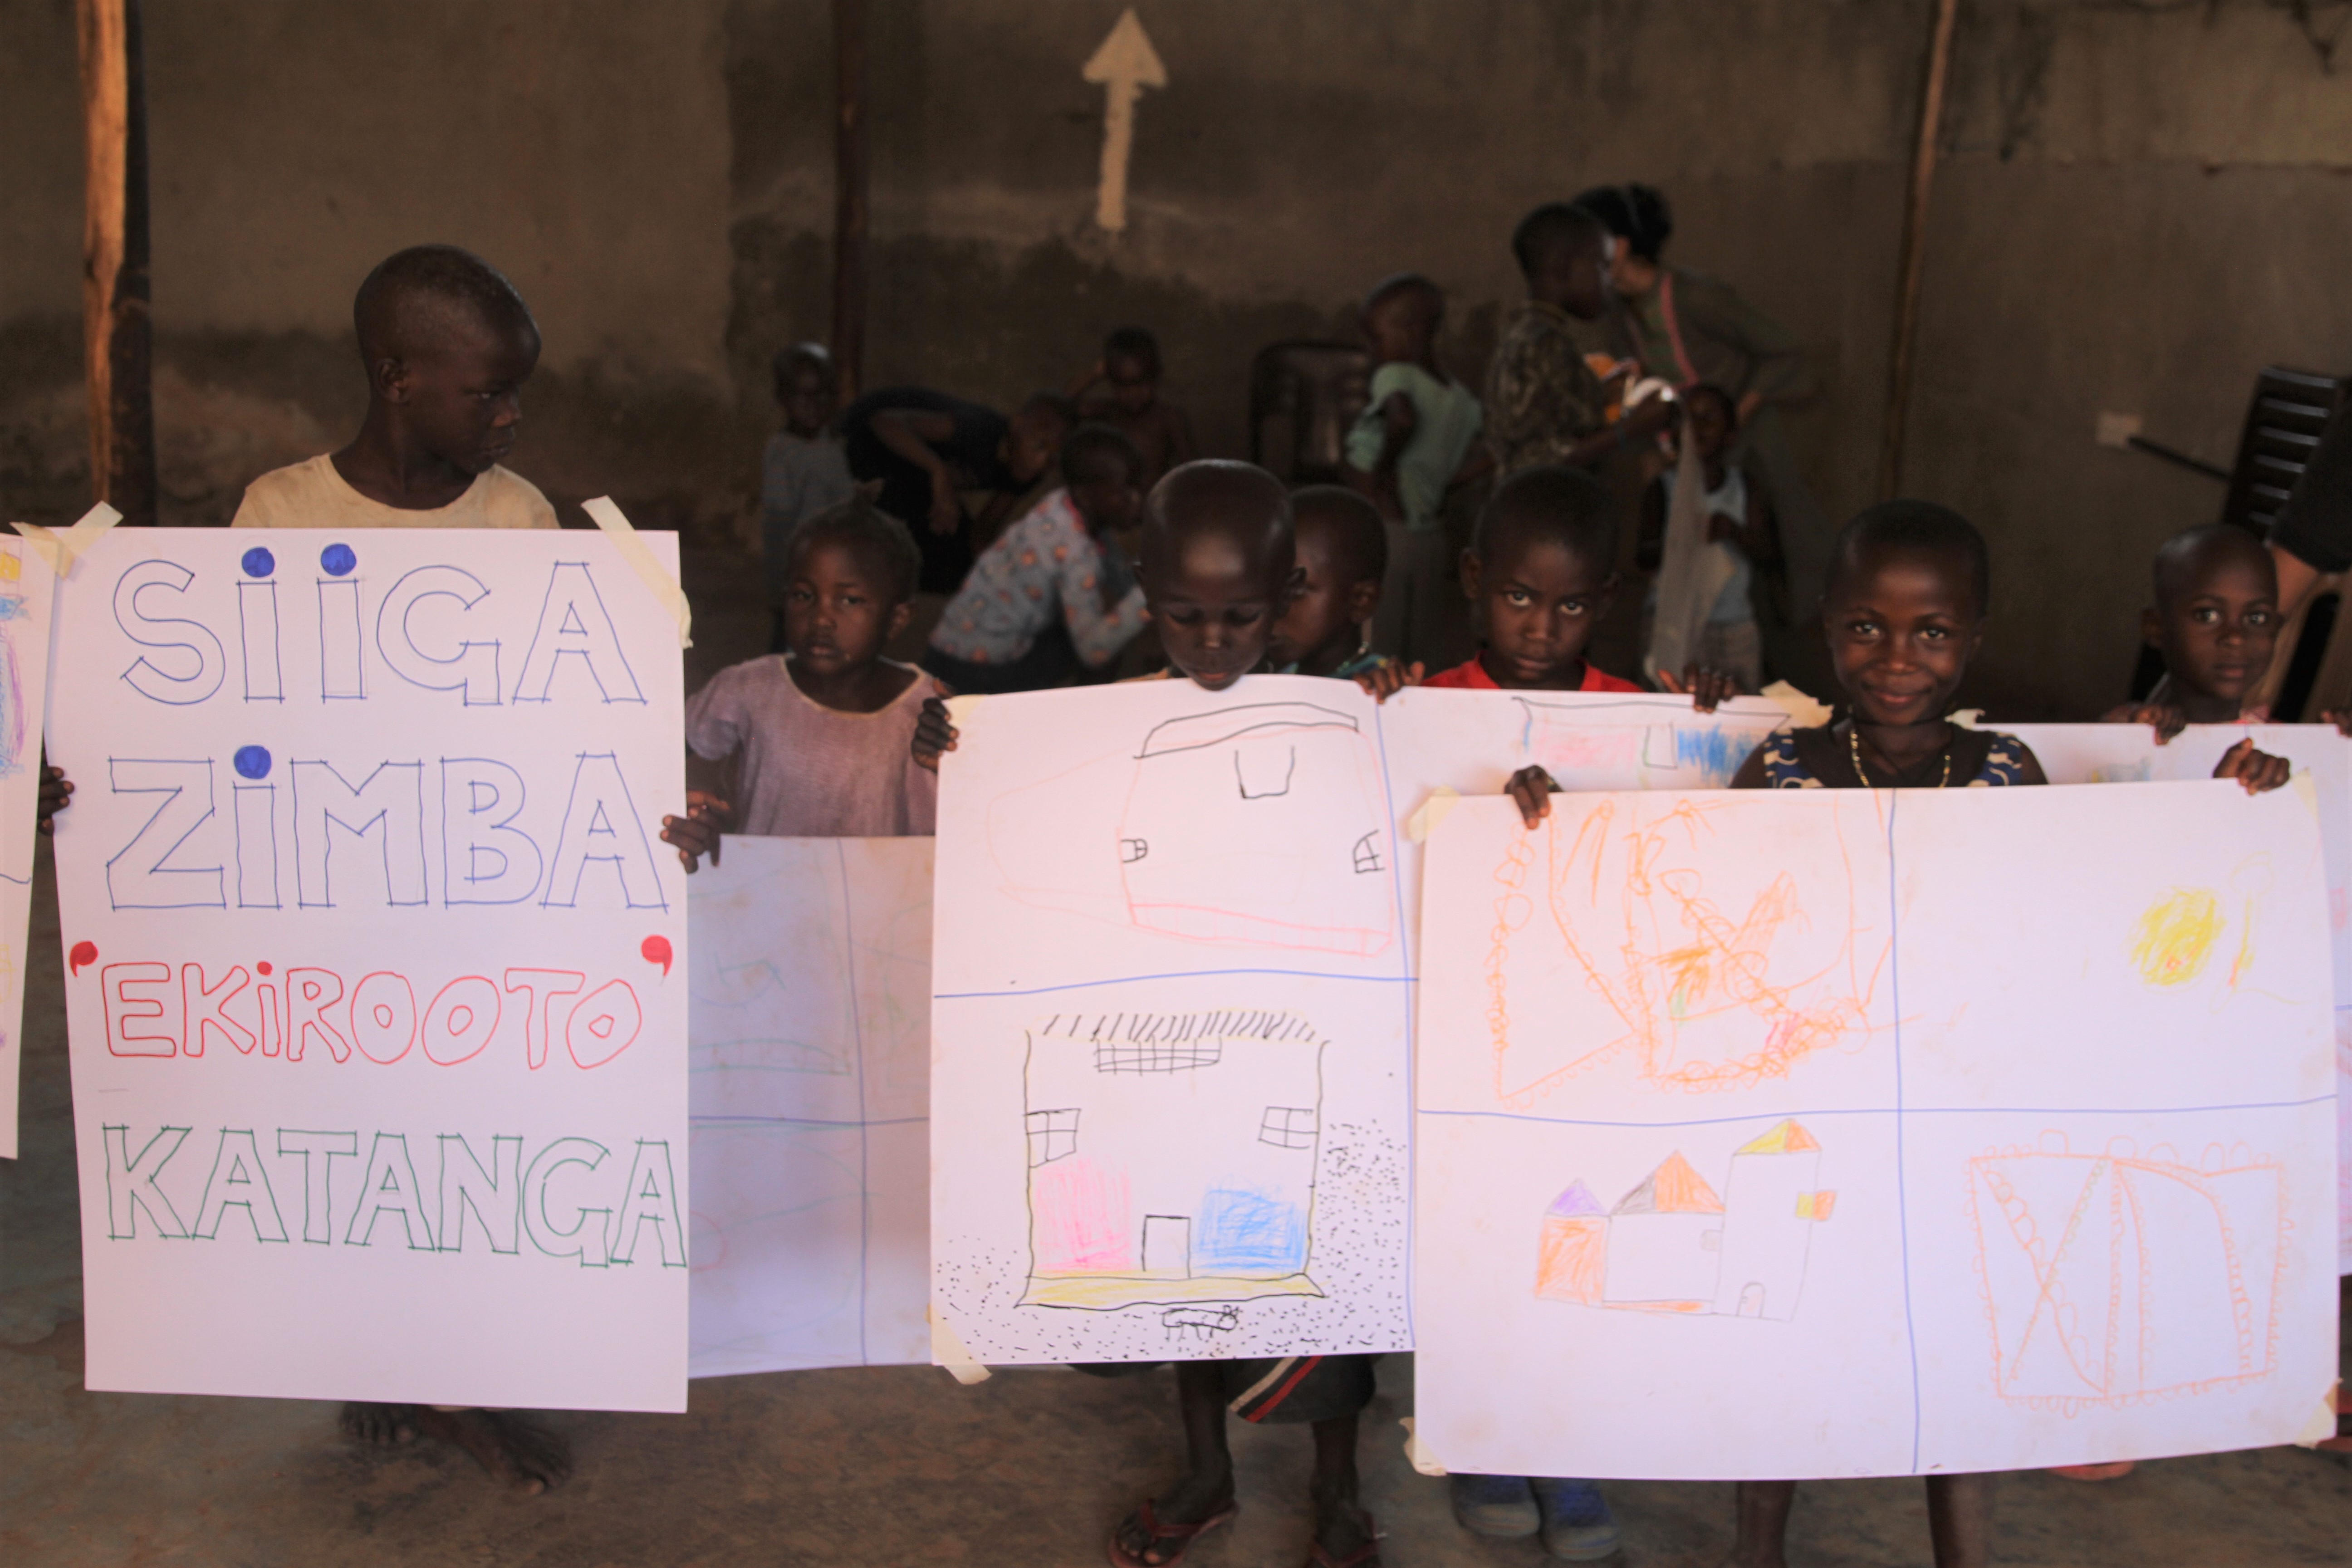 SiiGA
ZiMBA
'EKiROOTO'
KATANGA